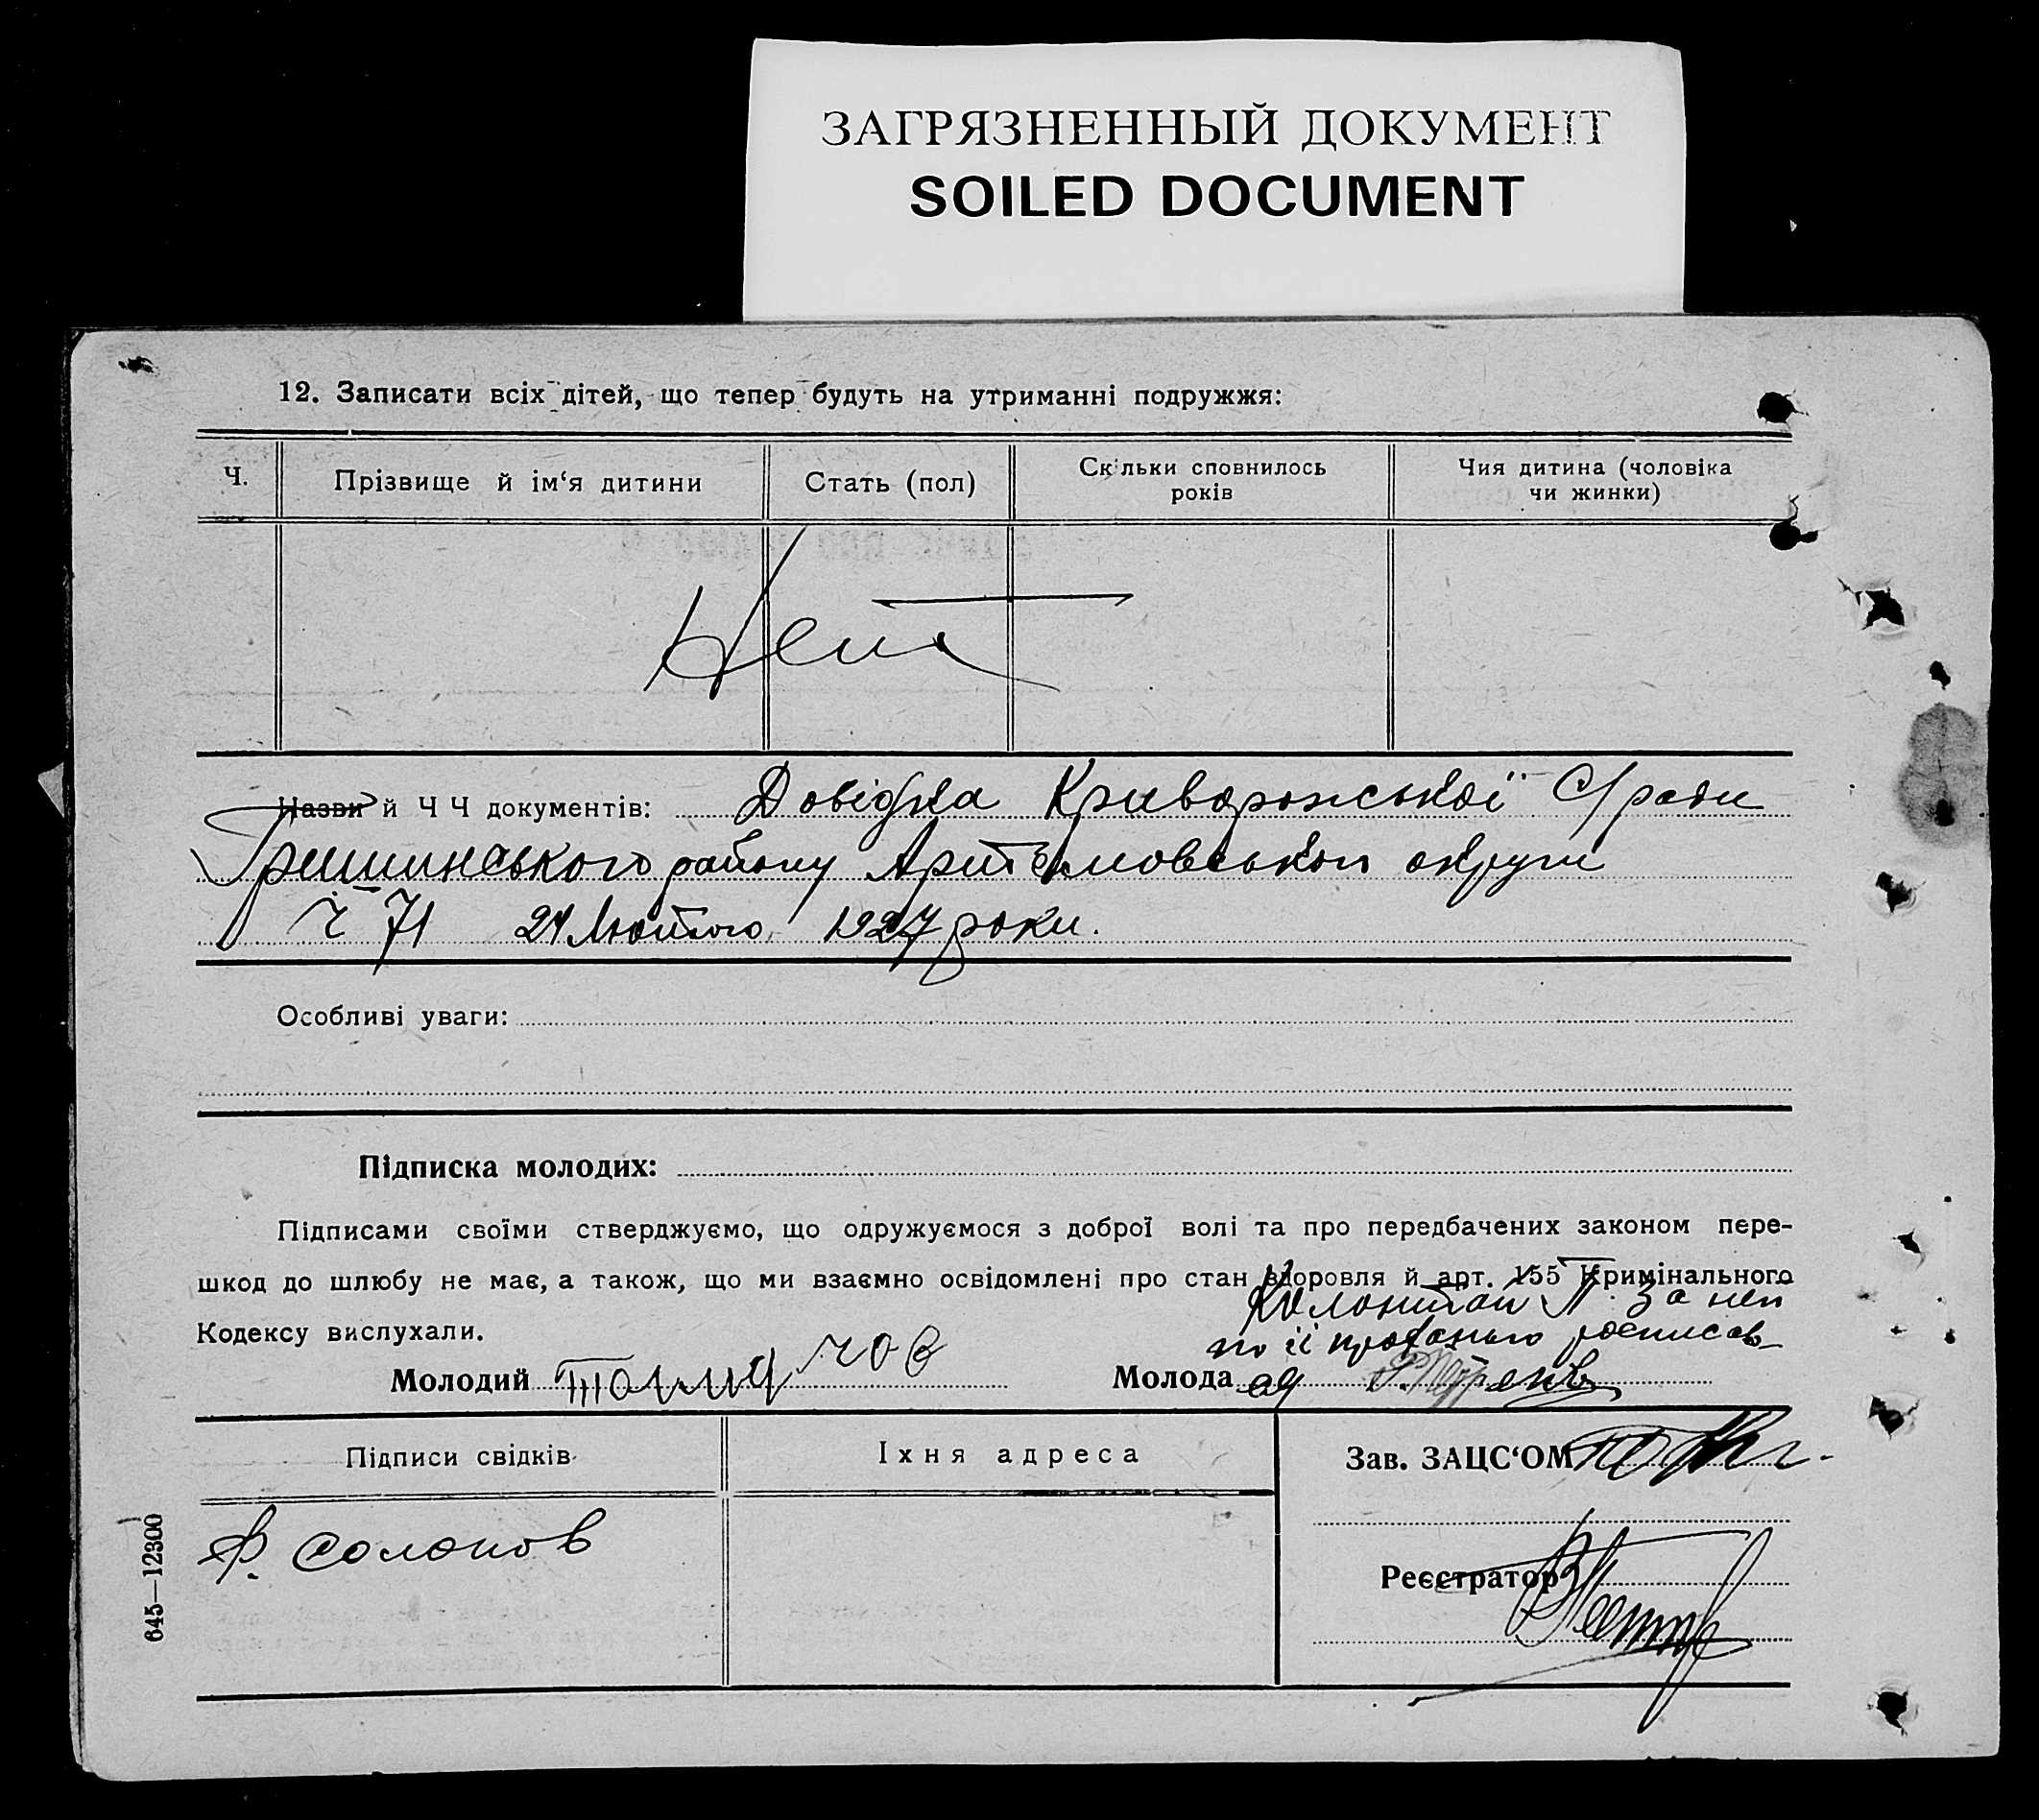 ЗАГРЯЗНЕННЫЙ ДОКУМЕНТ
SOILED DOCUMENT
12. Записати всіх дітей, що тепер будуть на утриманні подружжя:
Ч.
Прізвище й ім‘я дитини
Стать (пол)
Скільки сповнилось
років
Чия дитина (чоловіка
чи жинки)
Нет
Назви й Ч Ч документів: Довідка Криворожської С/ради
Гришинського району Артьомовськой округи
Ч 71 24 Лютого 1927 роки.
Особливі уваги:
Підписка молодих:
Підписами своїми стверджуємо, що одружуємося з доброї волі та про передбачених законом пере-
шкод до шлюбу не має, а також, що ми взаємно освідомлені про стан здоровля й арт. 155 Кримінального
Кодексу вислухали.
Колонтай П. за неи
по її росписав
Молодий
Молода
Підписи свідків
Їхня адреса
Зав. ЗАЦС‘ОМ
Ф. Солопов
Реєстратор
645—12300